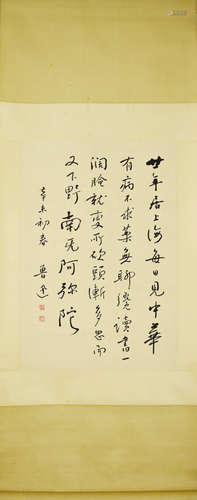 廿年居上海每日見中華
有病不求藥無聊纔讀書一
闊臉就變所砍頭漸多忽而
又下野南無阿彌陀
辛未初春 魯迅